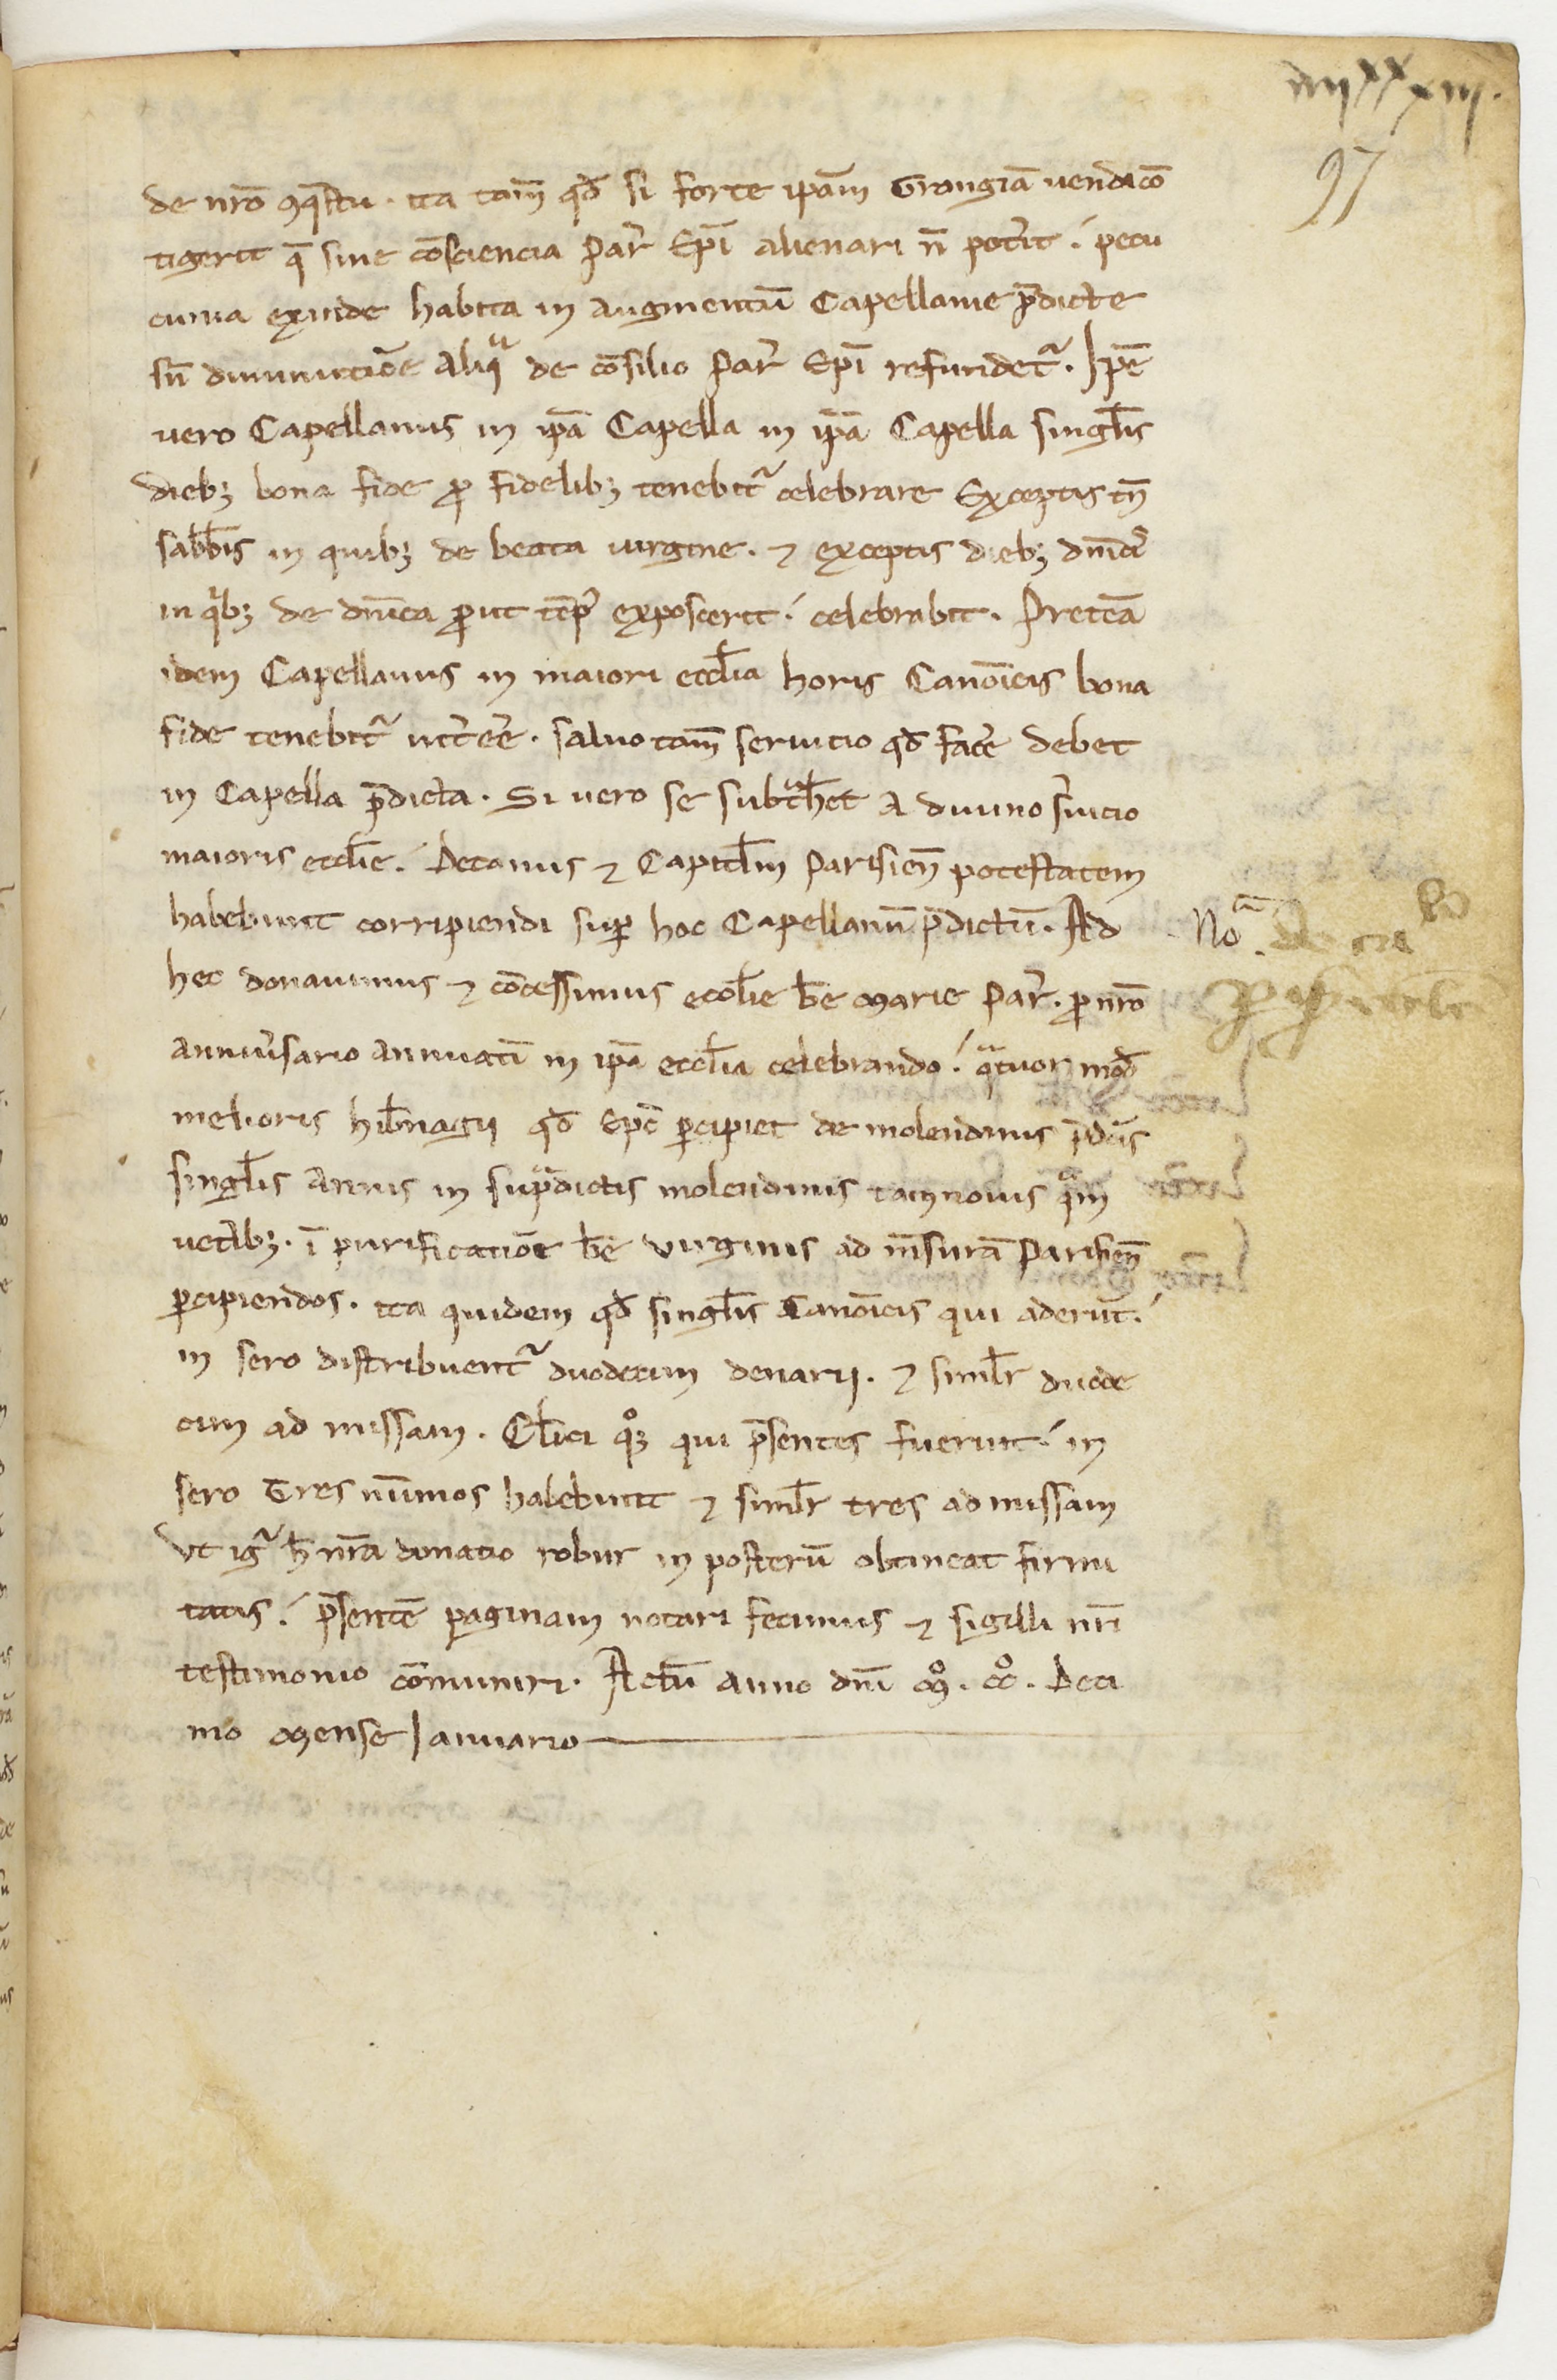 iiijˣˣxiij.
97
de nr̃o ɔq̃stu. ita tam̃ qd̃ si forte ip̃am Grangiã uendi cõ
tigerit q̃ sine cõsciencia Par̃ Ep̃i alienari ñ pot̃it. pecu
cunia exinde habita in augmentũ Capellanie p̃dicte
sñ diminutiõe aliqᵃ de cõsilio Par̃ Ep̃i refundet᷑. Ip̃e
uero Capellanus in ip̃a Capella in ip̃a Capella singl̃is
dieb; bona fide ꝓ fidelib; tenebit᷑ celebrare Exceptis tñ
sabb̃is in quib; de beata uirgine. ⁊ exceptis dieb; dñicis
in qⁱb; de dñica ꝓut tẽp᷒ exposcerit. celebrabit. Pretẽa
idem Capellanus in maiori eccl̃ia horis Canõicis bona
fide tenebit᷑ int̃eẽ. saluo tam̃ seruitio qd̃ fac̃e debet
in Capella p̃dicta. Si uero se subtᵃh̃et a diuino s̃uicio
maioris eccl̃ie. Decanus ⁊ Capitl̃m Parisieñ potestatem
habebunt corripiendi suꝑ hoc Capellanũ p̃dictũ. Ad
hec donauimus ⁊ cõcessimus eccl̃ie b̃e Marie Par̃. ꝓ nr̃o
anniũsario annuatĩ in ip̃a eccl̃ia celebrando. qᵃtuor mod̃
melioris hib̃nagij qd̃ Ep̃c ꝑcipiet de molendinis p̃dc̃is
singl̃is annis in supᵃdictis molendinis tam nouis qᵃm
uet̃ib;. ĩ purificatiõe b̃e uirginis ad m̃surã Parisieñ
ꝑcipiendos. ita quidem qd̃ singl̃is Canõicis qui aderũt.
in sero distribuent᷑ duodecim denarij. ⁊ simil̃r duode
cim ad missam. Cl̃ici qᵒ; qui p̃sentes fuerint. in
sero Tres nũmos habebunt ⁊ simil̃r tres ad missam
Vt igᷓ h̃ nr̃a donatio robur in posterũ obtineat firmi
tatis. p̃sentẽ paginam notari fecimus ⁊ sigilli nr̃i
testimonio cõmuniri. Actũ anno dñi Mᵒ. CCᵒ. Deci
mo Mense Ianuario
Noᵃ.